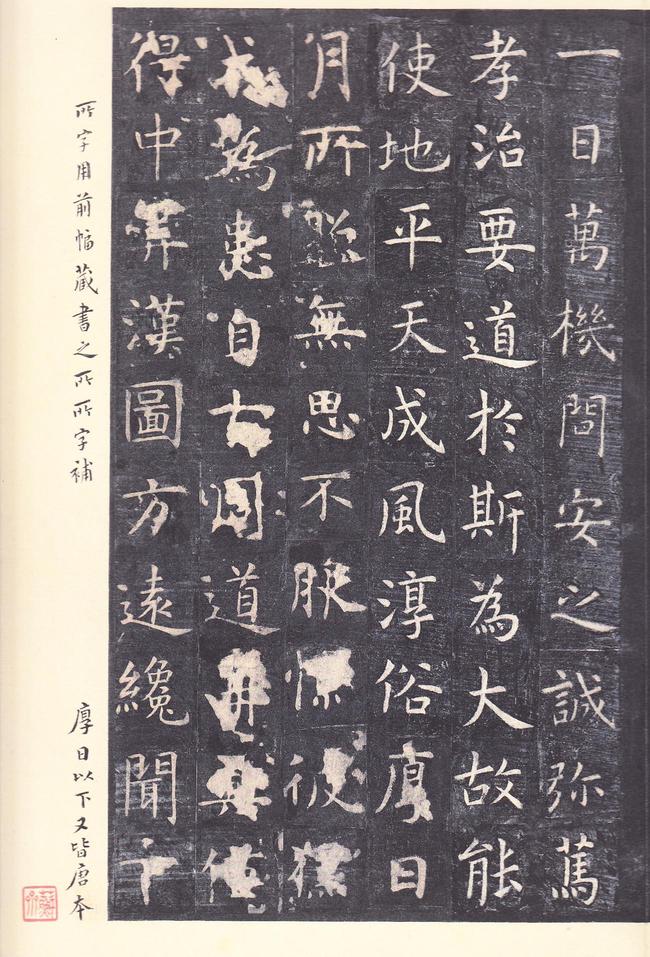 一日萬機問安之誠弥篤
孝治要道於斯為大故能
使地平天成風淳俗厚日
月所照無思不服憬彼獯
戎為患自古周道再興僅
得中筭漢圖方遠纔聞下
所字用前幅藏書之所所字補
厚日以下又皆唐本